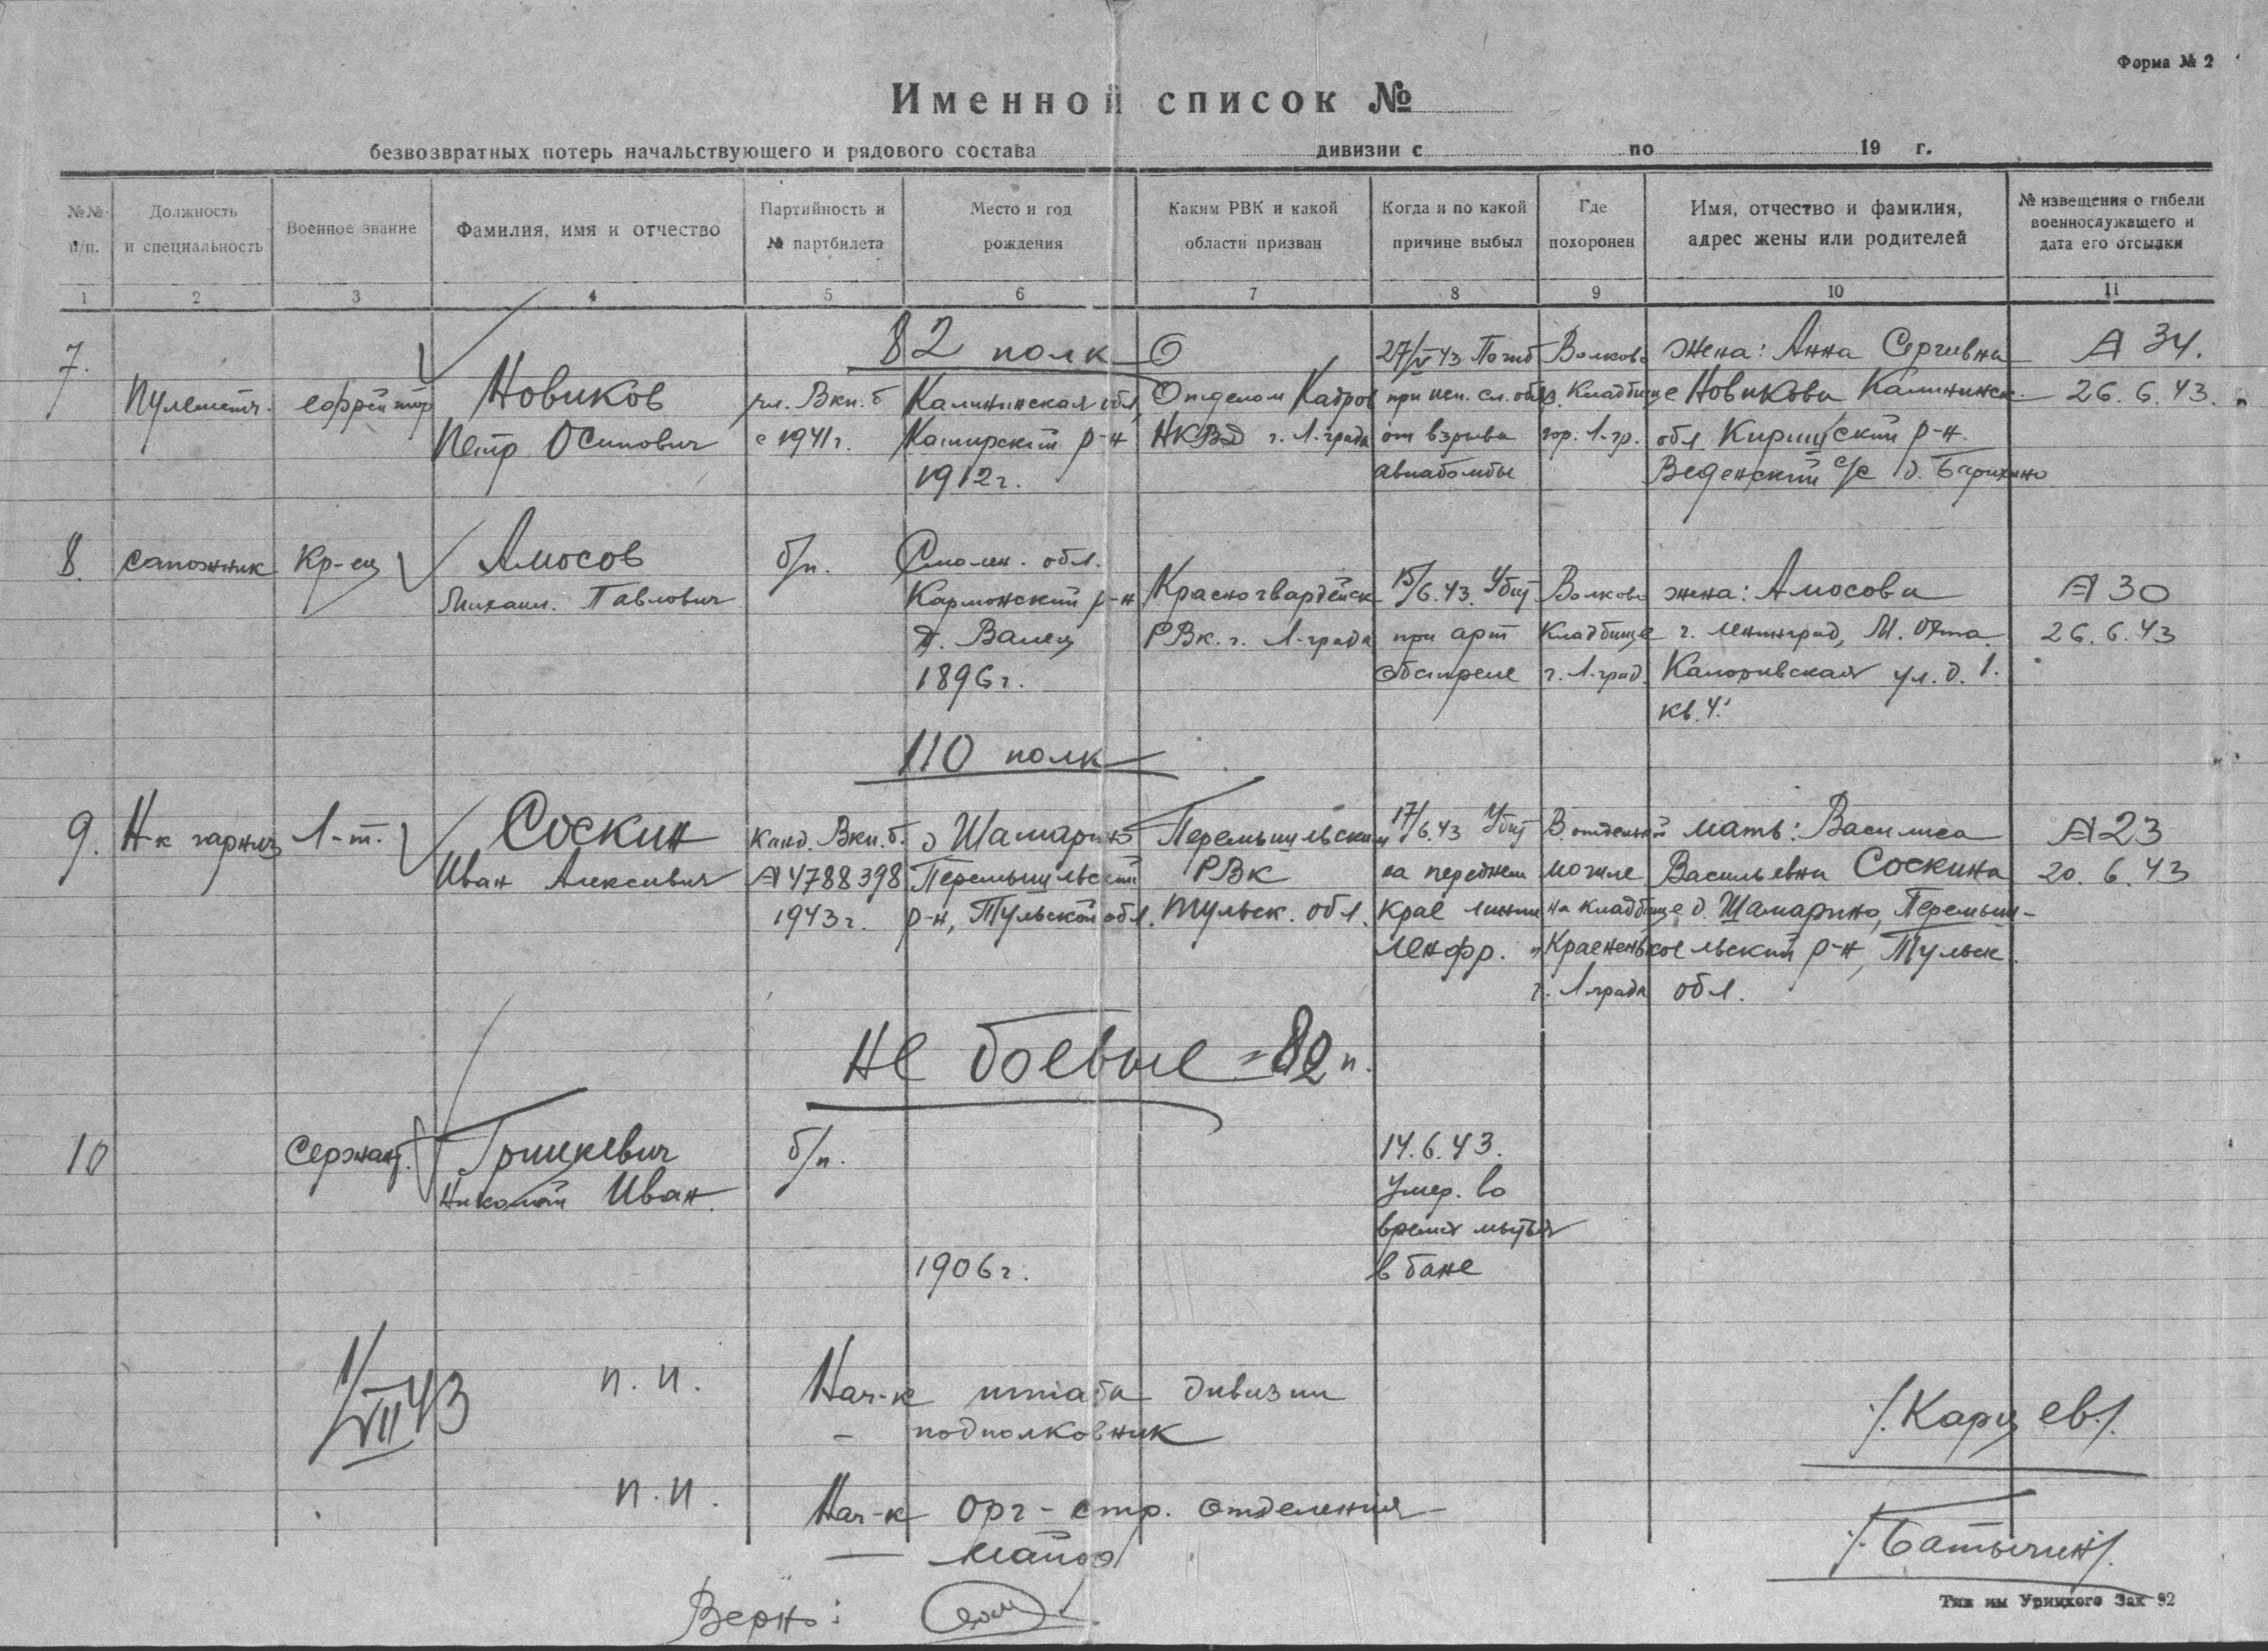 Форма № 2
Именной список №
безвозвратных потерь начальствующего и рядового состава дивизии с по 19 г.
№№ п/п.
Должность и специальность
Военное звание
Фамилия, имя и отчество
Партийность и № партбилета
Место и год рождения
Каким РВК и какой области призван
Когда и по какой причине выбыл
Где похоронен
Имя, отчество и фамилия, адрес жены или родителей
№ извещения о гибели военнослужащего и дата его отсылки
1 2 3 4 5 6 7 8 9 10 11
82 полк
7.
Пулеметч.
ефрейтор
Новиков
Петр Осипович
чл. Вкп.б
с 1941 г.
Калининская обл,
Каширский р-н
1912 г.
Отделом Кадров
НКВД г. Л-града
27/V 43 Погиб
при исп. сл. обяз.
от взрыва
авиабомбы
Волково
Кладбище
гор. Л-гр.
жена: Анна Сергиевна
Новикова Калининск.
обл. Киришский р-н.
Веденский с/с д.
А 34.
26.6.43.
8.
сапожник
Кр-ец
Амосов
Михаил. Павлович
б/п.
Смолен. обл.
Кармонский р-н
д. Валец
1896 г.
Красногвардейск
РВк. г. Л-града
15/6.43. Убит
при арт
обстреле
Волково
Кладбище
г. Л-град.
жена: Амосова
г. Ленинград, М. Охта
ул. д. 1.
кв. 4.
А 30
26.6.43
110 полк
9.
Н-к гарниз
Л-т.
Соскин
Иван Алексеевич
Канд. Вкп.б.
А 4788398
1943 г.
д Шамарино
Перемышльский
р-н, Тульской обл.
Перемышльским
РВк
Тульск. обл.
17/6.43 Убит
на переднем
крае линии
Ленфр.
В отдельной
могиле
на кладбище
"Красненькое
г. Лграда
мать: Василиса
Васильевна Соскина
д. Шамарино, Перемыш-
льский р-н, Тульск.
обл.
А 23
20.6.43
Не боевые = 82 п.
10
Сержант.
Гришкевич
Николай Иван.
б/п.
1906 г.
14.6.43.
Умер. во
время мытья
в бане
1/VII 43
п.п. Нач-к штаба дивизии
– подполковник
/.Карцев./
п.п. Нач-к орг-стр. отделения –
— майор
/.Батычин/.
Верно:
Тип им Урицкого Зак 92